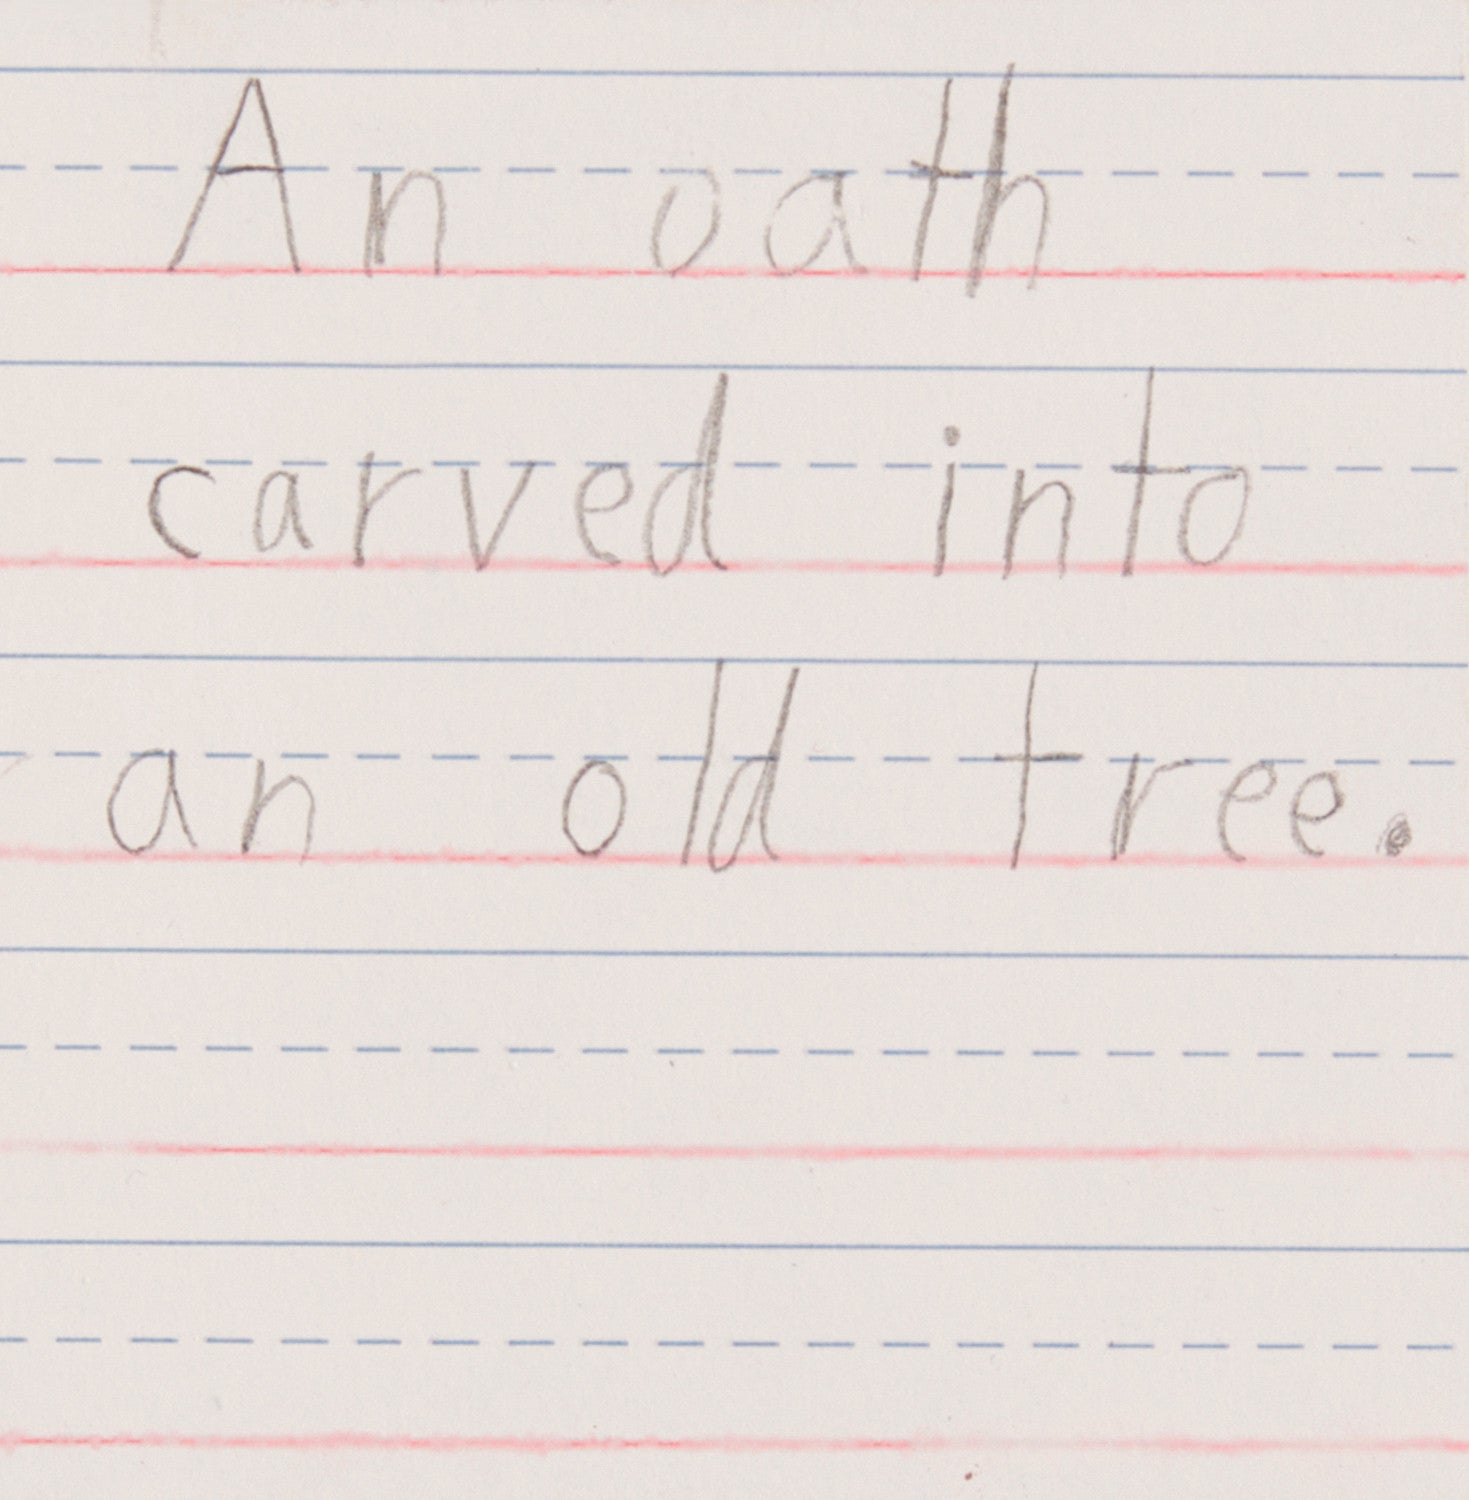 An oath
carved into
an old tree.